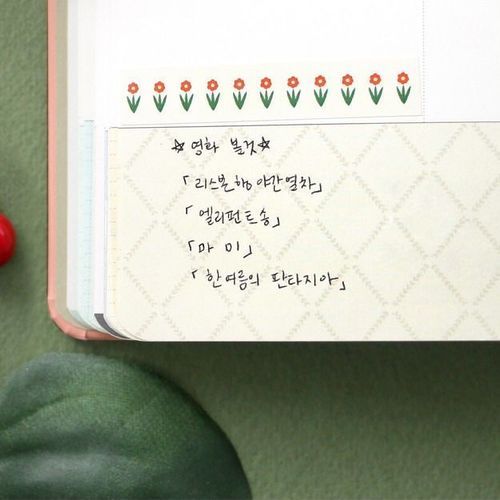 ☆영화 볼것☆
「리스본행 야간열차」
「엘리펀트송」
「마미」
「한여름의 판타지아」